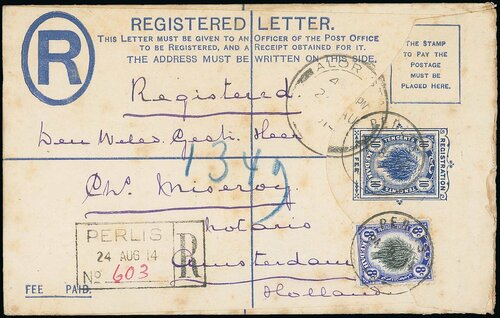 REGISTERED LETTER.
THIS LETTER MUST BE GIVEN TO AN OFFICER OF THE POST OFFICE
TO BE REGISTERED, AND A RECEIPT OBTAINED FOR IT.
THE ADDRESS MUST BE WRITTEN ON THIS SIDE.
R
THE STAMP
TO PAY THE
POSTAGE
MUST BE
PLACED HERE.
ALOR
Registered
1342
Notaris
Amsterdam
Holland
PERLIS
24 AUG 14
No 603
R
FEE PAID.
TEN CENTS
10
10
FEE
REGISTRATION
8c
8c